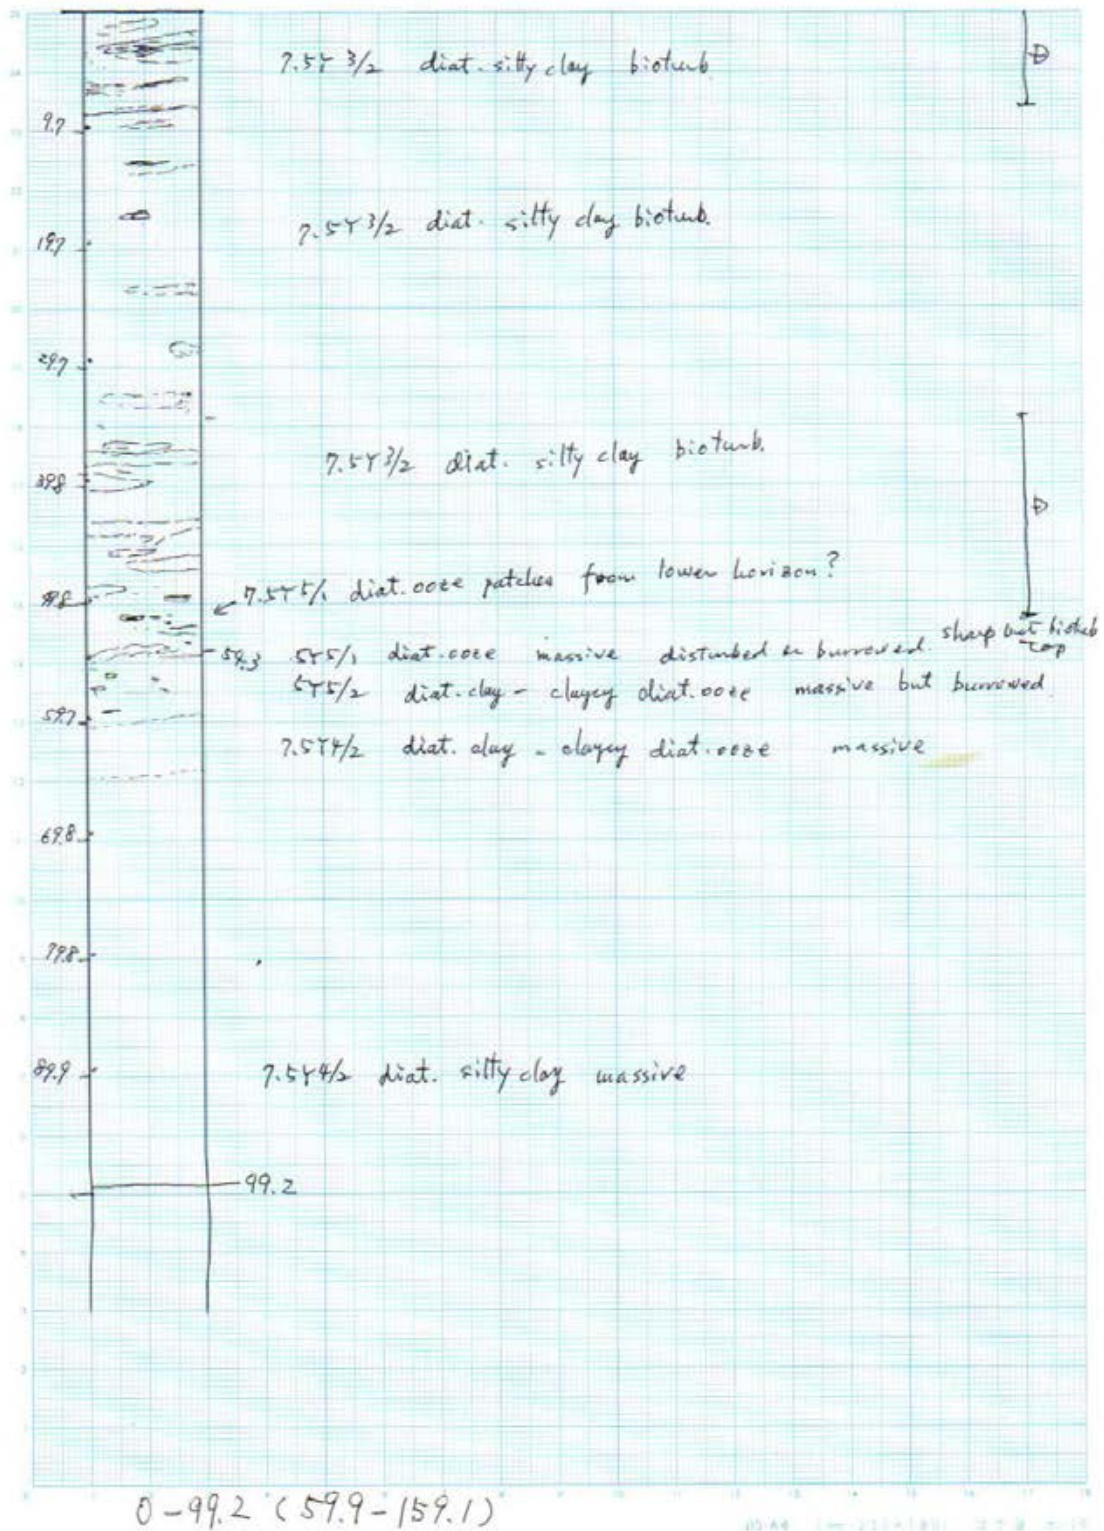 7.5Y 3/2 diat. silty clay bioturb.
D
9.7
7.5Y 3/2 diat. silty clay bioturb.
19.7
29.7
7.5Y 3/2 diat. silty clay bioturb.
39.8
D
7.5Y5/1 diat. ooze patches from lower horizon?
sharp but bioturb top
5Y5/1 diat. ooze massive disturbed or burrowed.
5Y5/2 diat. clay - clayey diat. ooze massive but burrowed
59.7
7.5Y4/2 diat. clay - clayey diat. ooze massive
69.8
79.8
89.9
7.5Y4/2 diat. silty clay massive
99.2
0-99.2 (59.9-159.1)